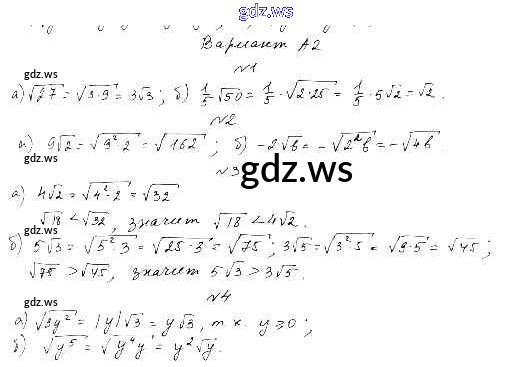 gdz.ws
Вариант А2
№1
gdz.ws
а) √27 = √3·9 = 3√3; б) 1/5 √50 = 1/5 · √2·25 = 1/5 · 5√2 = √2.
№2
gdz.ws
а) 9√2 = √9²·2 = √162; б) -2√b = -√2²b = -√4b
№3
gdz.ws
gdz.ws
а) 4√2 = √4²·2 = √32
√18 < √32, значит √18 < 4√2.
gdz.ws
б) 5√3 = √5²·3 = √25·3 = √75; 3√5 = √3²·5 = √9·5 = √45;
√75 > √45, значит 5√3 > 3√5.
№4
gdz.ws
а) √3y² = |y|√3 = y√3, т.к. y ≥ 0;
б) √y⁵ = √y⁴y = y²√y.
gdz.ws